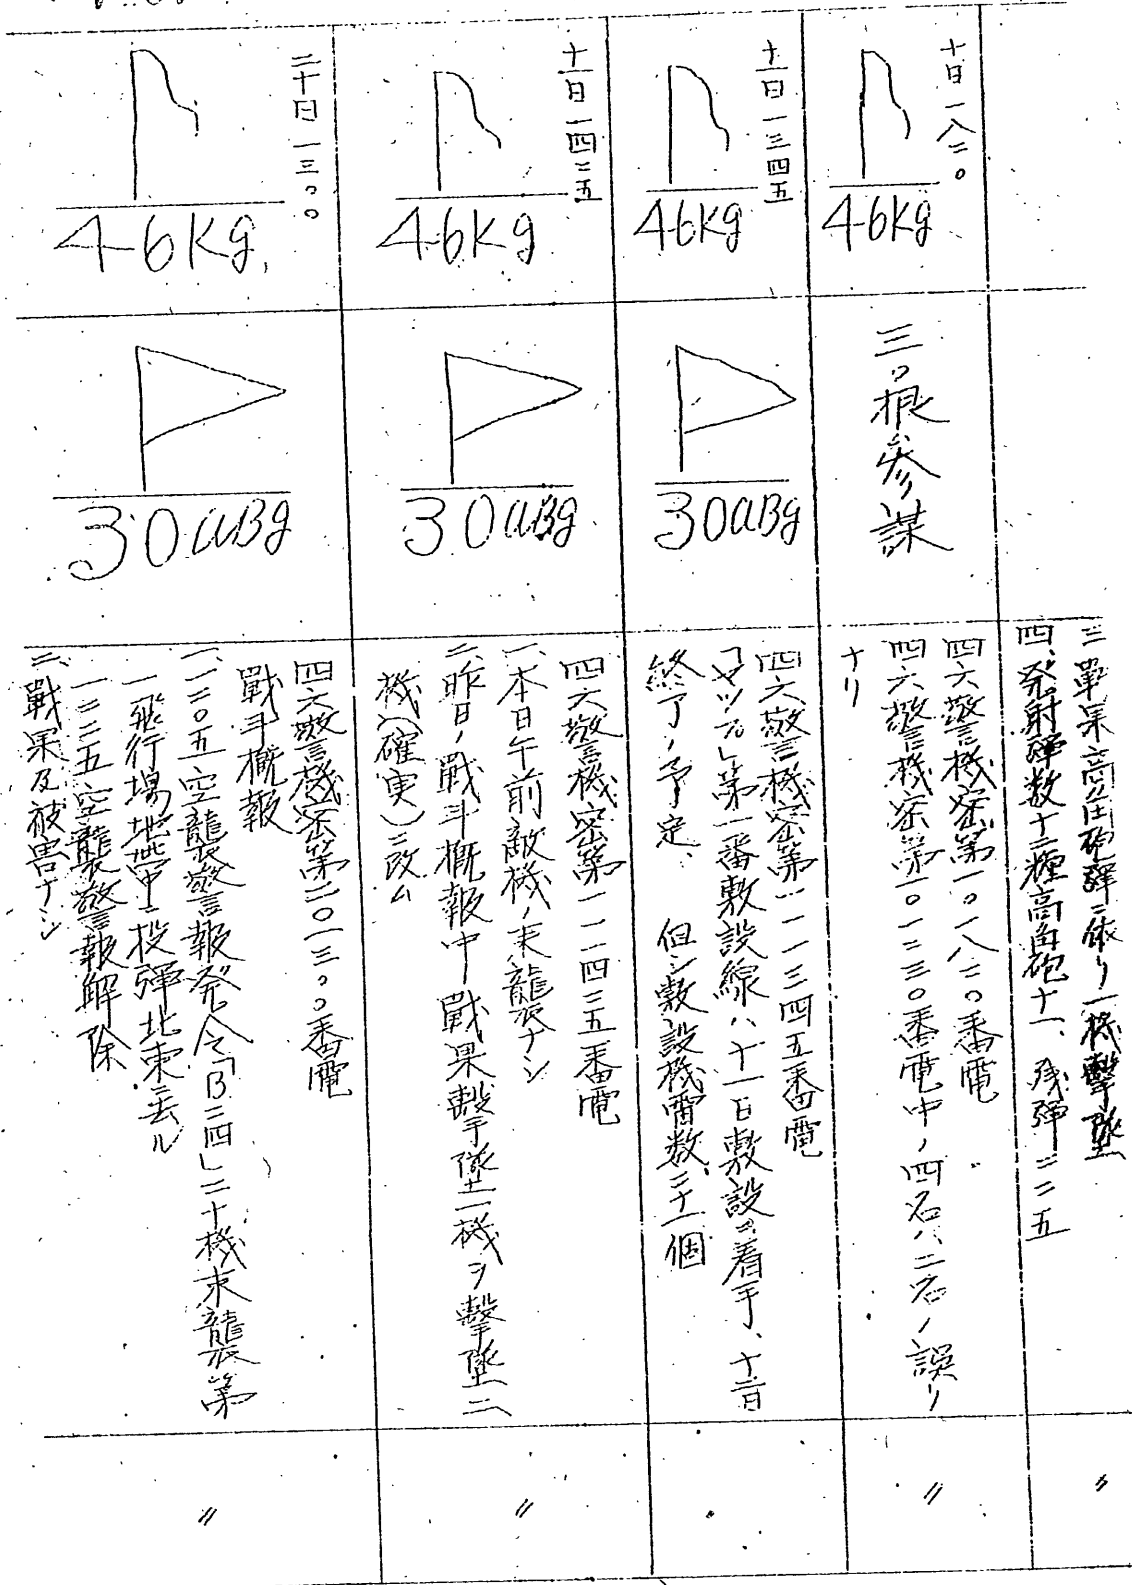 三戰果高角砲彈ニ依リ一機擊墜
四、発射弾数十二糎高角砲十一、残弾二二五
〃
十日一八二〇
46Kg
三〇根参謀
四六警機密第一〇一八二〇番電
四六警機密第一〇一三三〇番電中ノ四名ハ二名ノ誤リ
ナリ
〃
十一日一三四五
46Kg
30aBg
四六警機密第一一一三四五番電
第一番敷設線ハ十一日敷設ニ着手、十二日
終了ノ予定、但シ敷設機雷数、二十一個
十一日一四二五
46Kg
30aBg
四六警機密第一一一四二五番電
一、本日午前敵機ノ来襲ナシ
二、昨日ノ戰斗概報中戰果擊墜一機ヲ擊墜二
機(確実)ニ改ム
〃
二十日一三〇〇
46Kg
30aBg
四六警機密第二〇一三〇〇番電
戰斗概報
一、一二〇五空襲警報発令「B二四」二十機来襲第
一飛行場地帯ニ投弾北東ニ去ル
一二二五空襲警報解除
二、戰果及被害ナシ
〃